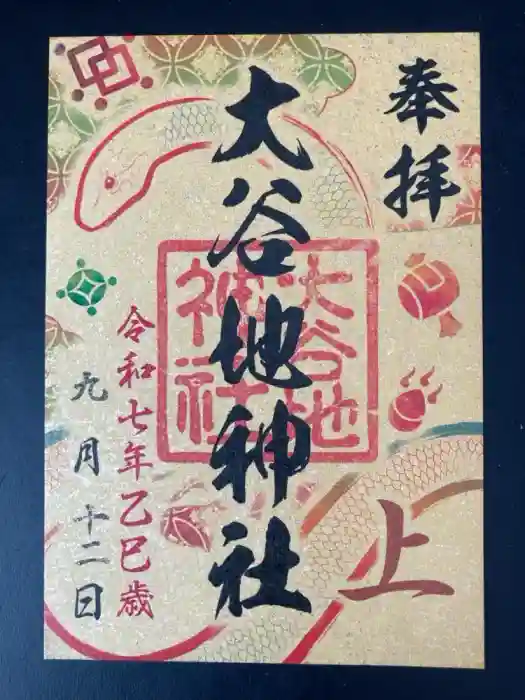 奉拝
上
大谷地神社
大谷地
神社
令和七年乙巳歳
九月十二日